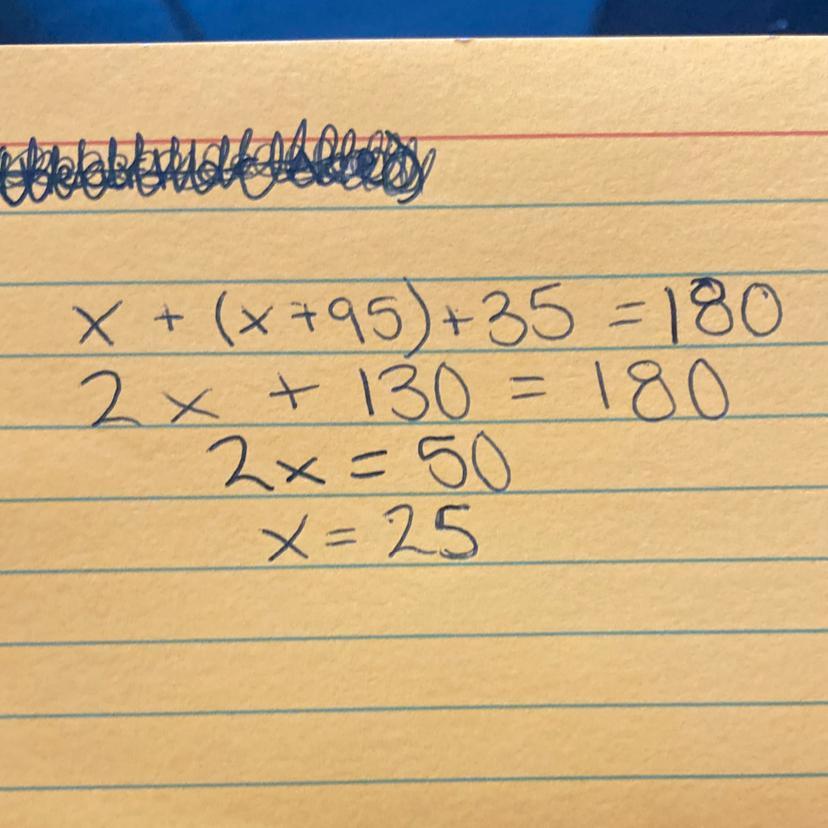 x + (x+95)+35 = 180
2x + 130 = 180
2x = 50
x = 25